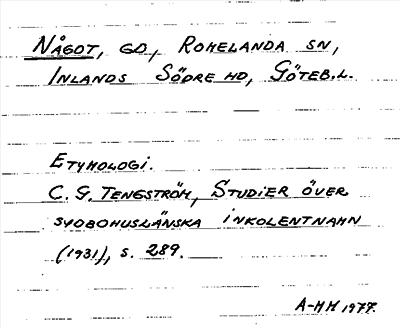 NÅGOT, GD, ROMELANDA SN,
INLANDS SÖDRE HD, GÖTEB.L.
ETYMOLOGI.
C. G. TENGSTRÖM, STUDIER ÖVER
SYDBOHUSLÄNSKA INKOLENTNAMN
(1931), S. 289.
A-MH 1977.